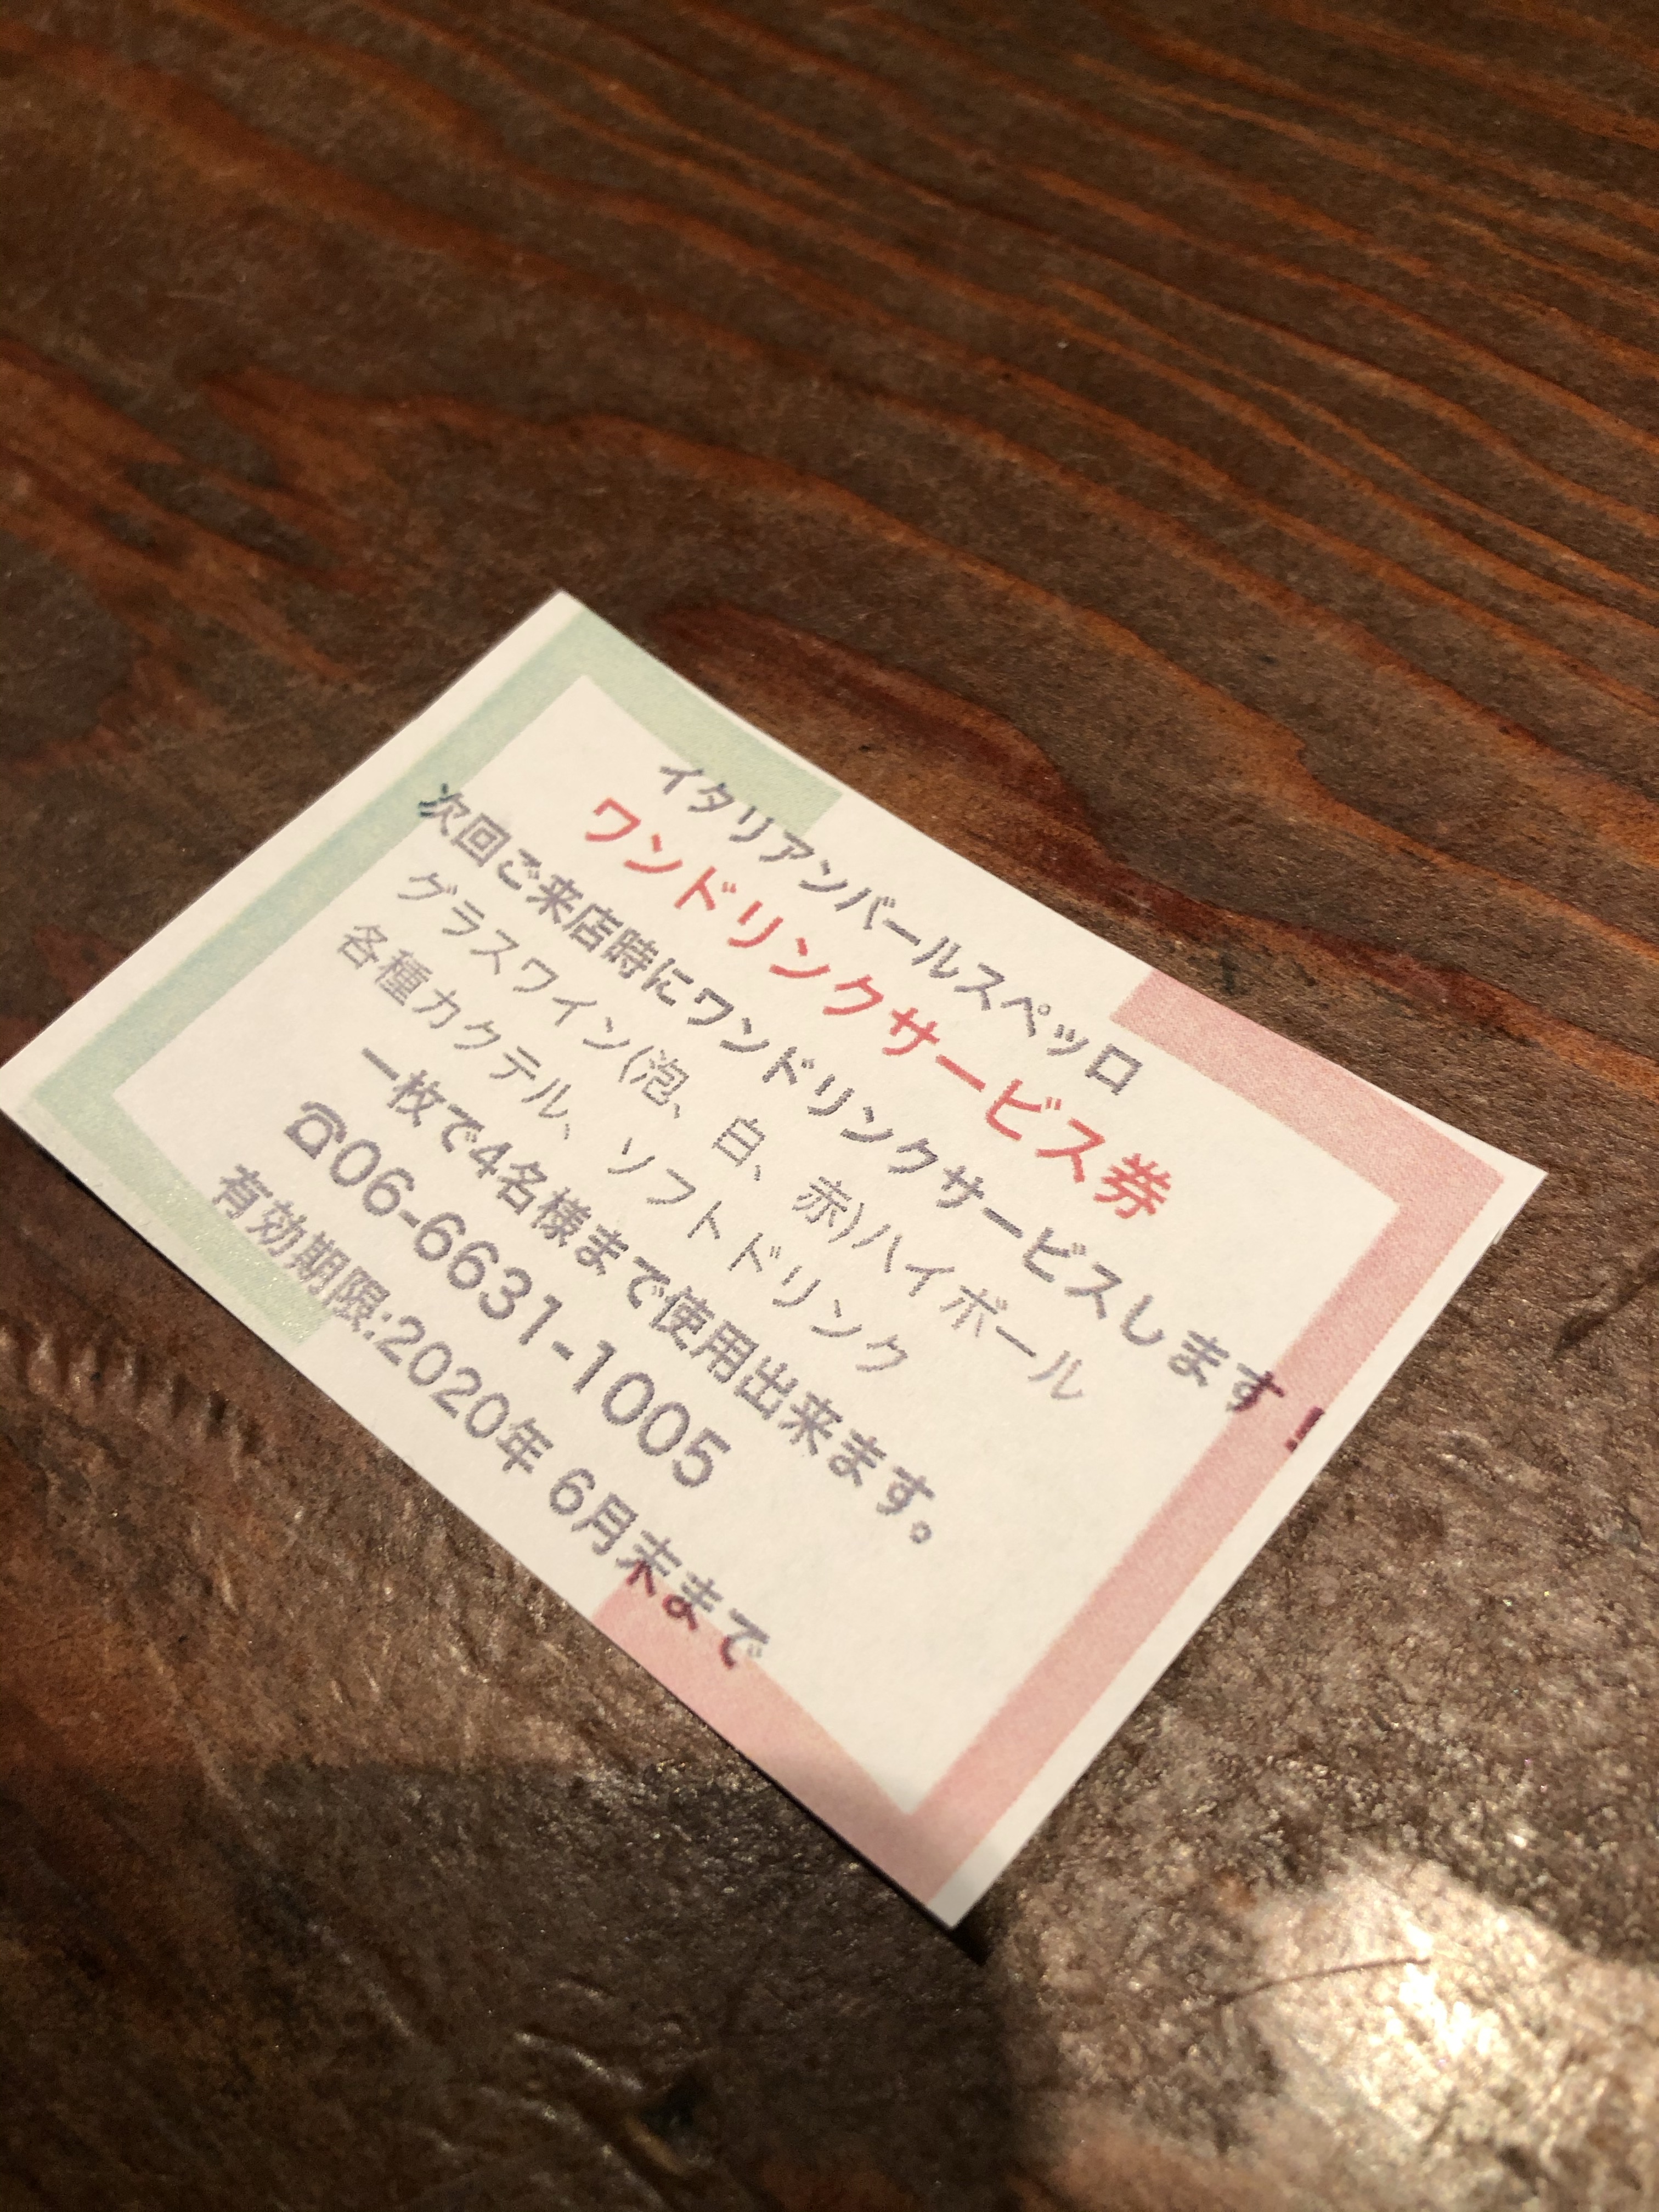 イタリアンバールスペッロ
ワンドリンクサービス券
次回ご来店時にワンドリンクサービスします！
グラスワイン(泡、白、赤)ハイボール
各種カクテル、ソフトドリンク
一枚で4名様まで使用出来ます。
☎06-6631-1005
有効期限:2020年 6月末まで